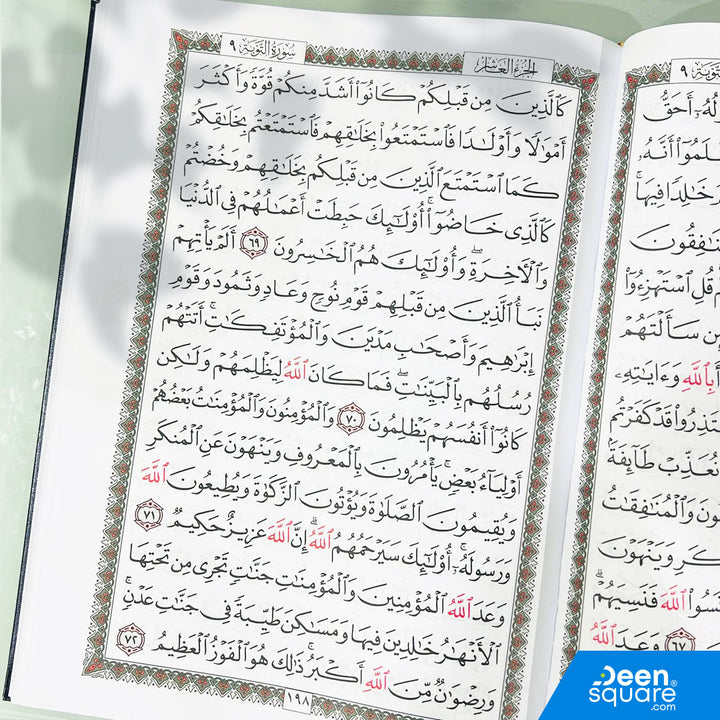 الجزء العاشر
سورة التوبة ٩
كَٱلَّذِينَ مِن قَبۡلِكُمۡ كَانُوٓاْ أَشَدَّ مِنكُمۡ قُوَّةٗ وَأَكۡثَرَ
أَمۡوَٰلٗا وَأَوۡلَٰدٗا فَٱسۡتَمۡتَعُواْ بِخَلَٰقِهِمۡ فَٱسۡتَمۡتَعۡتُم بِخَلَٰقِكُمۡ
كَمَا ٱسۡتَمۡتَعَ ٱلَّذِينَ مِن قَبۡلِكُم بِخَلَٰقِهِمۡ وَخُضۡتُمۡ
كَٱلَّذِي خَاضُوٓاْۚ أُوْلَٰٓئِكَ حَبِطَتۡ أَعۡمَٰلُهُمۡ فِي ٱلدُّنۡيَا
وَٱلۡأٓخِرَةِۖ وَأُوْلَٰٓئِكَ هُمُ ٱلۡخَٰسِرُونَ ٦٩ أَلَمۡ يَأۡتِهِمۡ
نَبَأُ ٱلَّذِينَ مِن قَبۡلِهِمۡ قَوۡمِ نُوحٖ وَعَادٖ وَثَمُودَ وَقَوۡمِ
إِبۡرَٰهِيمَ وَأَصۡحَٰبِ مَدۡيَنَ وَٱلۡمُؤۡتَفِكَٰتِۚ أَتَتۡهُمۡ
رُسُلُهُم بِٱلۡبَيِّنَٰتِۖ فَمَا كَانَ ٱللَّهُ لِيَظۡلِمَهُمۡ وَلَٰكِن
كَانُوٓاْ أَنفُسَهُمۡ يَظۡلِمُونَ ٧٠ وَٱلۡمُؤۡمِنُونَ وَٱلۡمُؤۡمِنَٰتُ بَعۡضُهُمۡ
أَوۡلِيَآءُ بَعۡضٖۚ يَأۡمُرُونَ بِٱلۡمَعۡرُوفِ وَيَنۡهَوۡنَ عَنِ ٱلۡمُنكَرِ
وَيُقِيمُونَ ٱلصَّلَوٰةَ وَيُؤۡتُونَ ٱلزَّكَوٰةَ وَيُطِيعُونَ ٱللَّهَ
وَرَسُولَهُۥٓۚ أُوْلَٰٓئِكَ سَيَرۡحَمُهُمُ ٱللَّهُۗ إِنَّ ٱللَّهَ عَزِيزٌ حَكِيمٞ ٧١
وَعَدَ ٱللَّهُ ٱلۡمُؤۡمِنِينَ وَٱلۡمُؤۡمِنَٰتِ جَنَّٰتٖ تَجۡرِي مِن تَحۡتِهَا
ٱلۡأَنۡهَٰرُ خَٰلِدِينَ فِيهَا وَمَسَٰكِنَ طَيِّبَةٗ فِي جَنَّٰتِ عَدۡنٖۚ
وَرِضۡوَٰنٞ مِّنَ ٱللَّهِ أَكۡبَرُۚ ذَٰلِكَ هُوَ ٱلۡفَوۡزُ ٱلۡعَظِيمُ ٧٢
١٩٨
التوبة ٩
أَحَقُّ
أَنَّهُۥ
خَٰلِدٗا فِيهَاۚ
قُلِ ٱسۡتَهۡزِءُوٓاْ
سَأَلۡتَهُمۡ
وَءَايَٰتِهِۦ
قَدۡ كَفَرۡتُم
طَآئِفَةَۢ
وَٱلۡمُنَٰفِقَٰتُ
وَيَنۡهَوۡنَ
ٱللَّهَ فَنَسِيَهُمۡۚ
٦٧ وَعَدَ ٱللَّهُ
Deen
square
.com